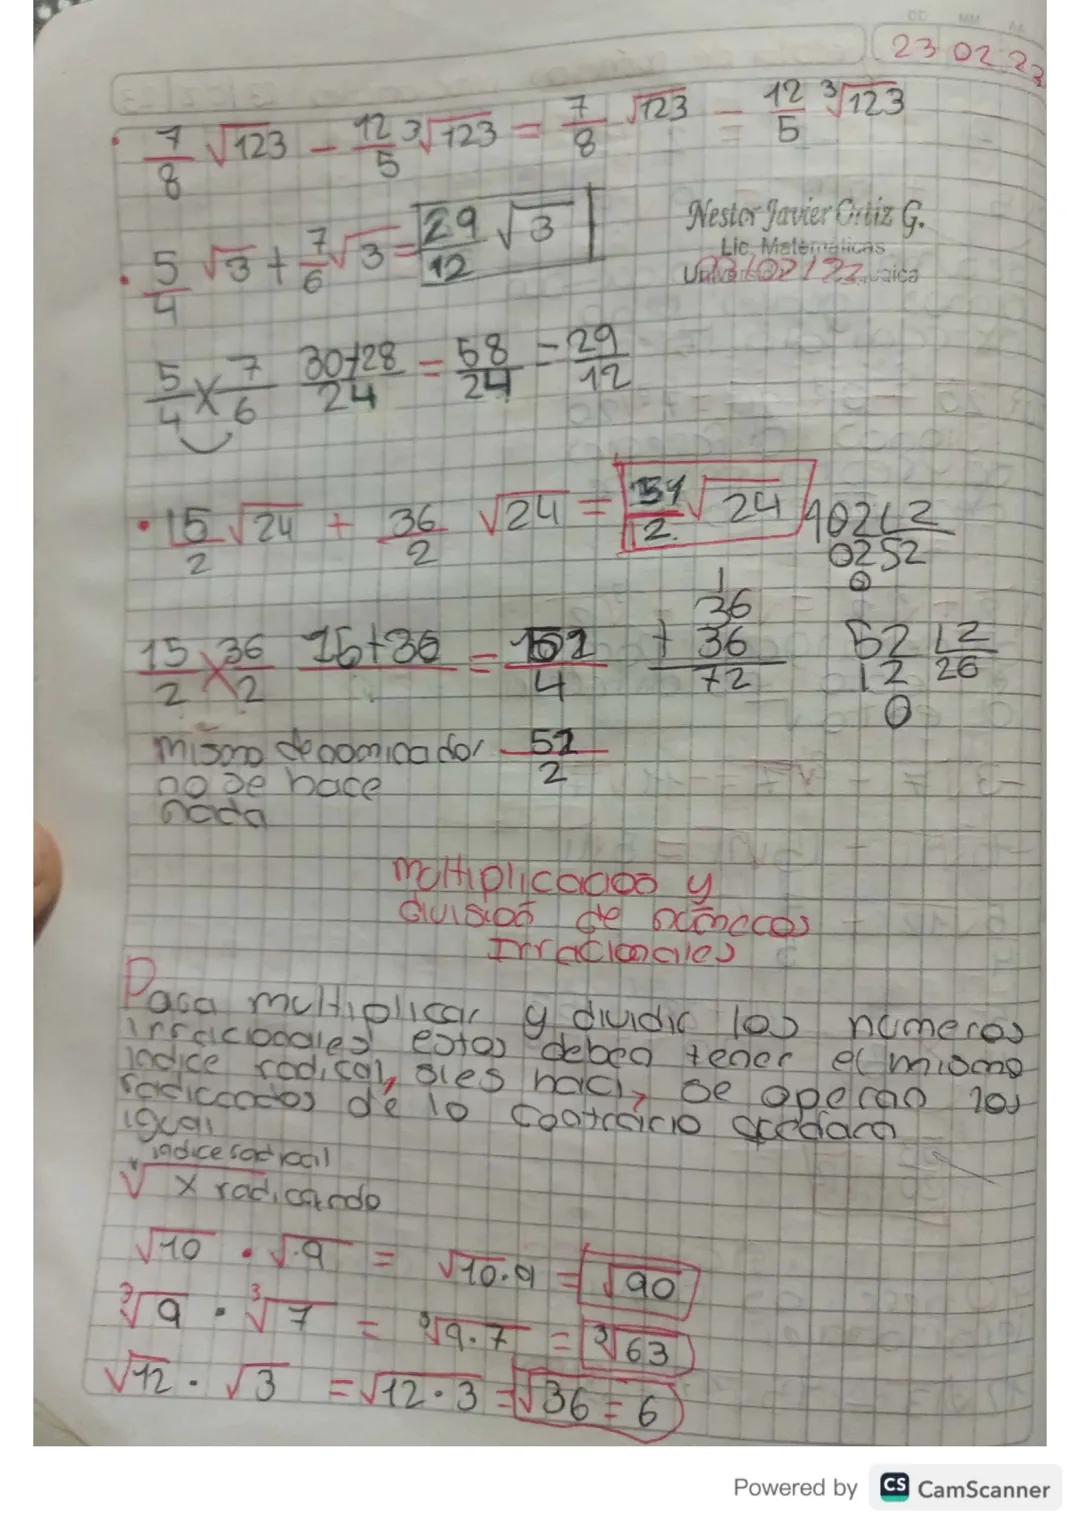 DD MM AA
23 02 23
• 7/8 √123 - 12/5 ³√123 = 7/8 √123 - 12/5 ³√123
Nestor Javier Ortiz G.
Lic. Matemáticas
• 5/4 √3 + 7/6 √3 = 29/12 √3
5/4 x 7/6 30+28/24 = 58/24 = 29/12
• 15/2 √24 + 36/2 √24 = 51/2 √24
102 2
02 52
0
15/2 x 36/2 15+36 = 102/4
1
36
+ 36
72
52 2
12 26
0
mismo denominador 51/2
no se hace
nada
multiplicacion y
division de numeros
Irracionales
Para multiplicar y dividir los numeros
irracionales estos deben tener el mismo
indice radical, si es haci, se operan los
radicandos de lo contrario quedara
igual
indice radical
√ x radicando
√10 • √9 = √10.9 = √90
³√9 • ³√7 = ³√9.7 = ³√63
√12 • √3 = √12 • 3 = √36 = 6
Powered by CS CamScanner